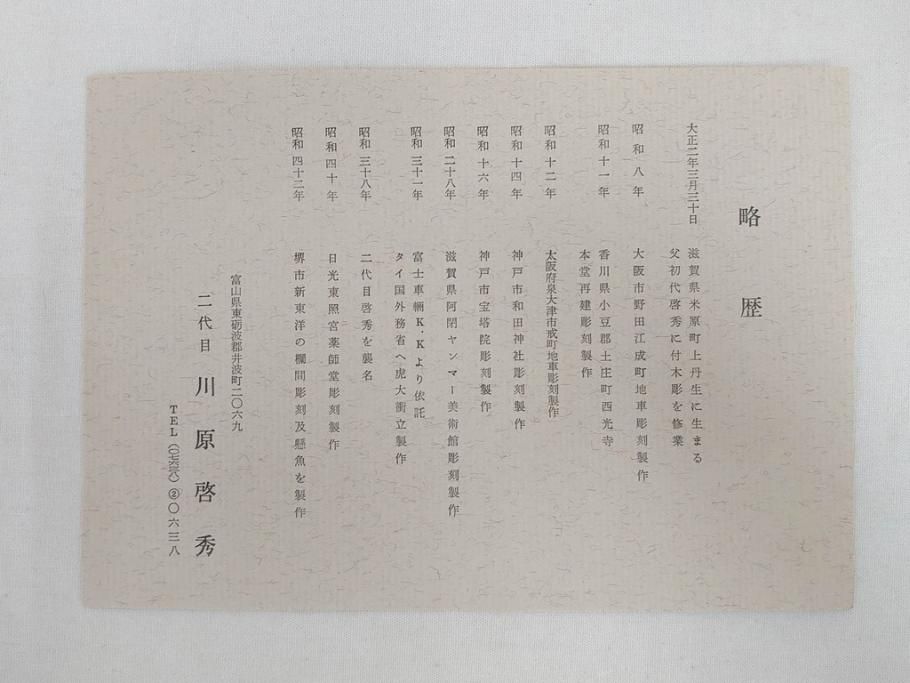 略歴
大正二年三月三十日 滋賀県米原町上丹生に生まる
父初代啓秀に付木彫を修業
昭和八年 大阪市野田江成町地車彫刻製作
昭和十一年 香川県小豆郡土庄町西光寺
本堂再建彫刻製作
昭和十二年 大阪府泉大津市戒町地車彫刻製作
昭和十四年 神戸市和田神社彫刻製作
昭和十六年 神戸市宝塔院彫刻製作
昭和二十八年 滋賀県阿閉ヤンマー美術館彫刻製作
昭和三十一年 富士車輛K・Kより依託
タイ国外務省へ虎大衝立製作
昭和三十八年 二代目啓秀を襲名
昭和四十年 日光東照宮薬師堂彫刻製作
昭和四十二年 堺市新東洋の欄間彫刻及懸魚を製作
富山県東砺波郡井波町二〇六九
二代目 川原啓秀
TEL(〇七六三八)②〇六三八